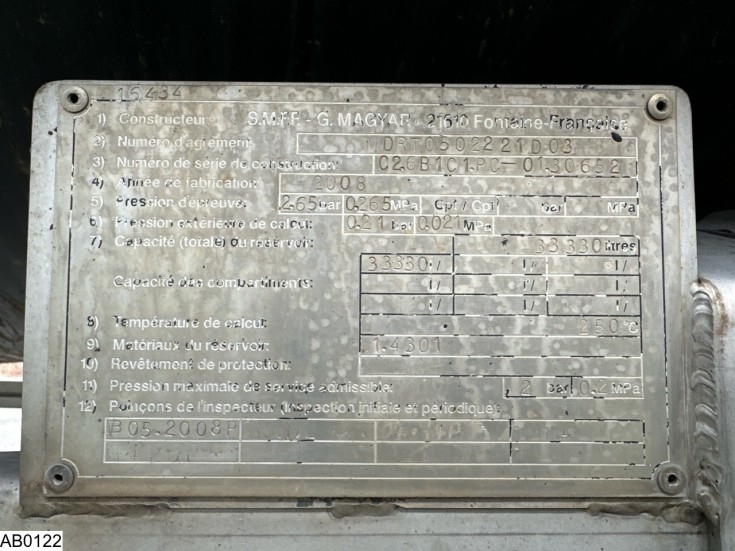 15434
1) Constructeur: S.M.F.F. - G. MAGYAR - 21610 Fontaine-Française
2) Numéro d'agrément: DRT0502221D.03
3) Numéro de série de construction: C26B1C1.PC-01.30652
4) Année de fabrication: 2008
5) Pression d'épreuve: 2.65 bar 0.265 MPa Cpt / Cpt bar MPa
6) Pression extérieure de calcul: 0.21 bar 0.021 MPa
7) Capacité (totale) du réservoir: 33.330 litres
33330 1/ 1/ 1/
Capacité des compartiments: 1/ 1/ 1/
1/ 1/ 1/
8) Température de calcul: 250 °C
9) Matériaux du réservoir: 1.4301
10) Revêtement de protection:
11) Pression maximale de service admissible: 2 bar 0.2 MPa
12) Poinçons de l'inspecteur (inspection initiale et périodique):
B 05.2008P
AB0122